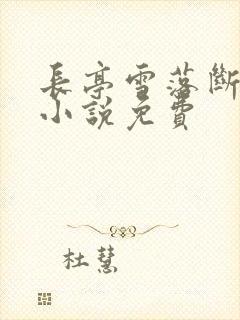 長亭雪落斷
小說免費
杜慧